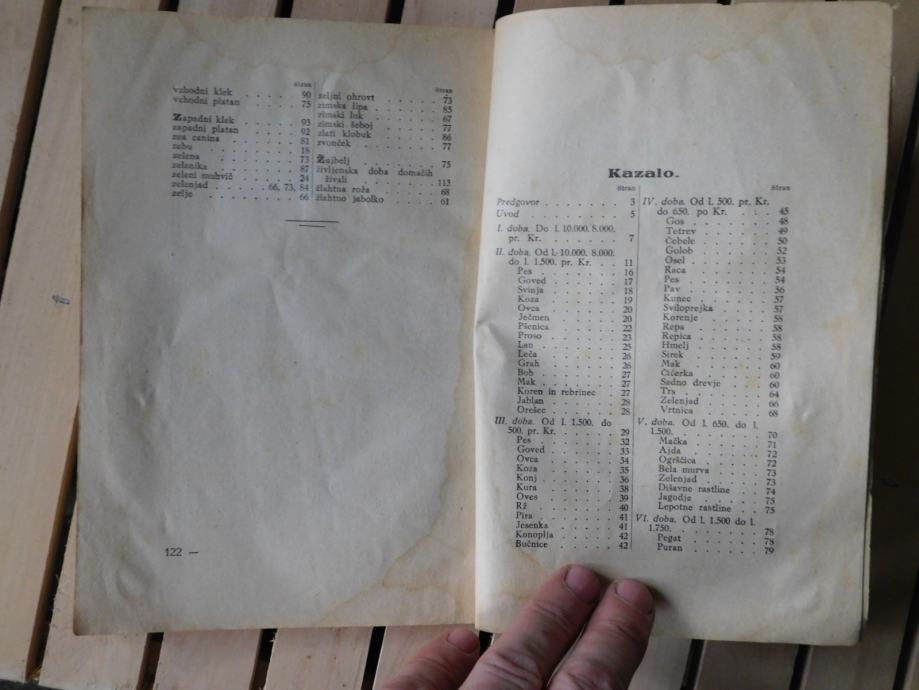 štran
vzhodni klek . . . . . 90
vzhodni platan . . . . 75
Zapadni klek . . . . . 93
zapadni platan . . . . 92
zea canina . . . . . . 81
zebu . . . . . . . . 18
zelena . . . . . . . 73
zelenika . . . . . . 87
zeleni muhvič . . . . 24
zelenjad . . . 66, 73, 84
zelje . . . . . . . . 66
štran
zeljni ohrovt . . . . . 73
zimska lipa . . . . . 85
zimski luk . . . . . . 67
zimski šeboj . . . . . 77
zlati klobuk . . . . . 86
zvonček . . . . . . . 77
Žajbelj . . . . . . . 75
življenska doba domačih
živali . . . . . . . 113
žlahtna roža . . . . . 68
žlahtno jabolko . . . . 61
122 —
Kazalo.
štran
Predgovor . . . . . . 3
Uvod . . . . . . . . 5
I. doba. Do l. 10.000. 8.000.
pr. Kr. . . . . . . . 7
II. doba. Od l. 10.000. 8.000.
do l. 1.500. pr. Kr. . . . 11
Pes . . . . . . . . 16
Goved . . . . . . . 17
Svinja . . . . . . . 18
Koza . . . . . . . . 19
Ovca . . . . . . . . 20
Ječmen . . . . . . . 20
Pšenica . . . . . . . 22
Proso . . . . . . . . 23
Lan . . . . . . . . 25
Leča . . . . . . . . 26
Grah . . . . . . . . 26
Bob . . . . . . . . 27
Mak . . . . . . . . 27
Koren in rebrinec . . . 27
Jablan . . . . . . . 28
Orešec . . . . . . . 28
III. doba. Od l. 1.500. do
500. pr. Kr. . . . . . . 29
Pes . . . . . . . . 32
Goved . . . . . . . 33
Ovca . . . . . . . . 34
Koza . . . . . . . . 35
Konj . . . . . . . . 36
Kura . . . . . . . . 38
Oves . . . . . . . . 39
Rž . . . . . . . . . 40
Pira . . . . . . . . 41
Jesenka . . . . . . . 41
Konoplja . . . . . . 42
Bučnice . . . . . . . 42
štran
IV. doba. Od l. 500. pr. Kr.
do 650. po Kr. . . . . . 45
Gos . . . . . . . . 48
Tetrev . . . . . . . 49
Čebele . . . . . . . 50
Golob . . . . . . . . 52
Osel . . . . . . . . 53
Raca . . . . . . . . 54
Pes . . . . . . . . 54
Pav . . . . . . . . 56
Kunec . . . . . . . . 57
Sviloprejka . . . . . . 57
Korenje . . . . . . . 58
Repa . . . . . . . . 58
Repica . . . . . . . 58
Hmelj . . . . . . . . 58
Sirek . . . . . . . . 59
Mak . . . . . . . . 60
Čičerka . . . . . . . 60
Sadno drevje . . . . . 60
Trs . . . . . . . . . 64
Zelenjad . . . . . . . 66
Vrtnica . . . . . . . 68
V. doba. Od l. 650. do l.
1.500. . . . . . . . . 70
Mačka . . . . . . . . 71
Ajda . . . . . . . . 72
Ogrščica . . . . . . . 72
Bela murva . . . . . . 73
Zelenjad . . . . . . . 73
Dišavne rastline . . . . 74
Jagodje . . . . . . . 75
Lepotne rastline . . . . 75
VI. doba. Od l. 1.500 do l.
1.750. . . . . . . . . 78
Pegat . . . . . . . . 78
Puran . . . . . . . . 79